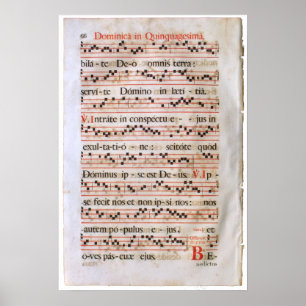 66 Dominica in Quinquagesima.
bila-te Deo omnis terra:
servi-te Dómino in lætitia,
V.I Intráte in conspéctu e-jus in
exultati-óne: scitóte quód
Dóminus ipse est De-us. V.I p-
se fecit nos et non ipsi nos: nos
autem pópulus e-jus, et
o-ves páscuæ ejus. BE-
nedictus